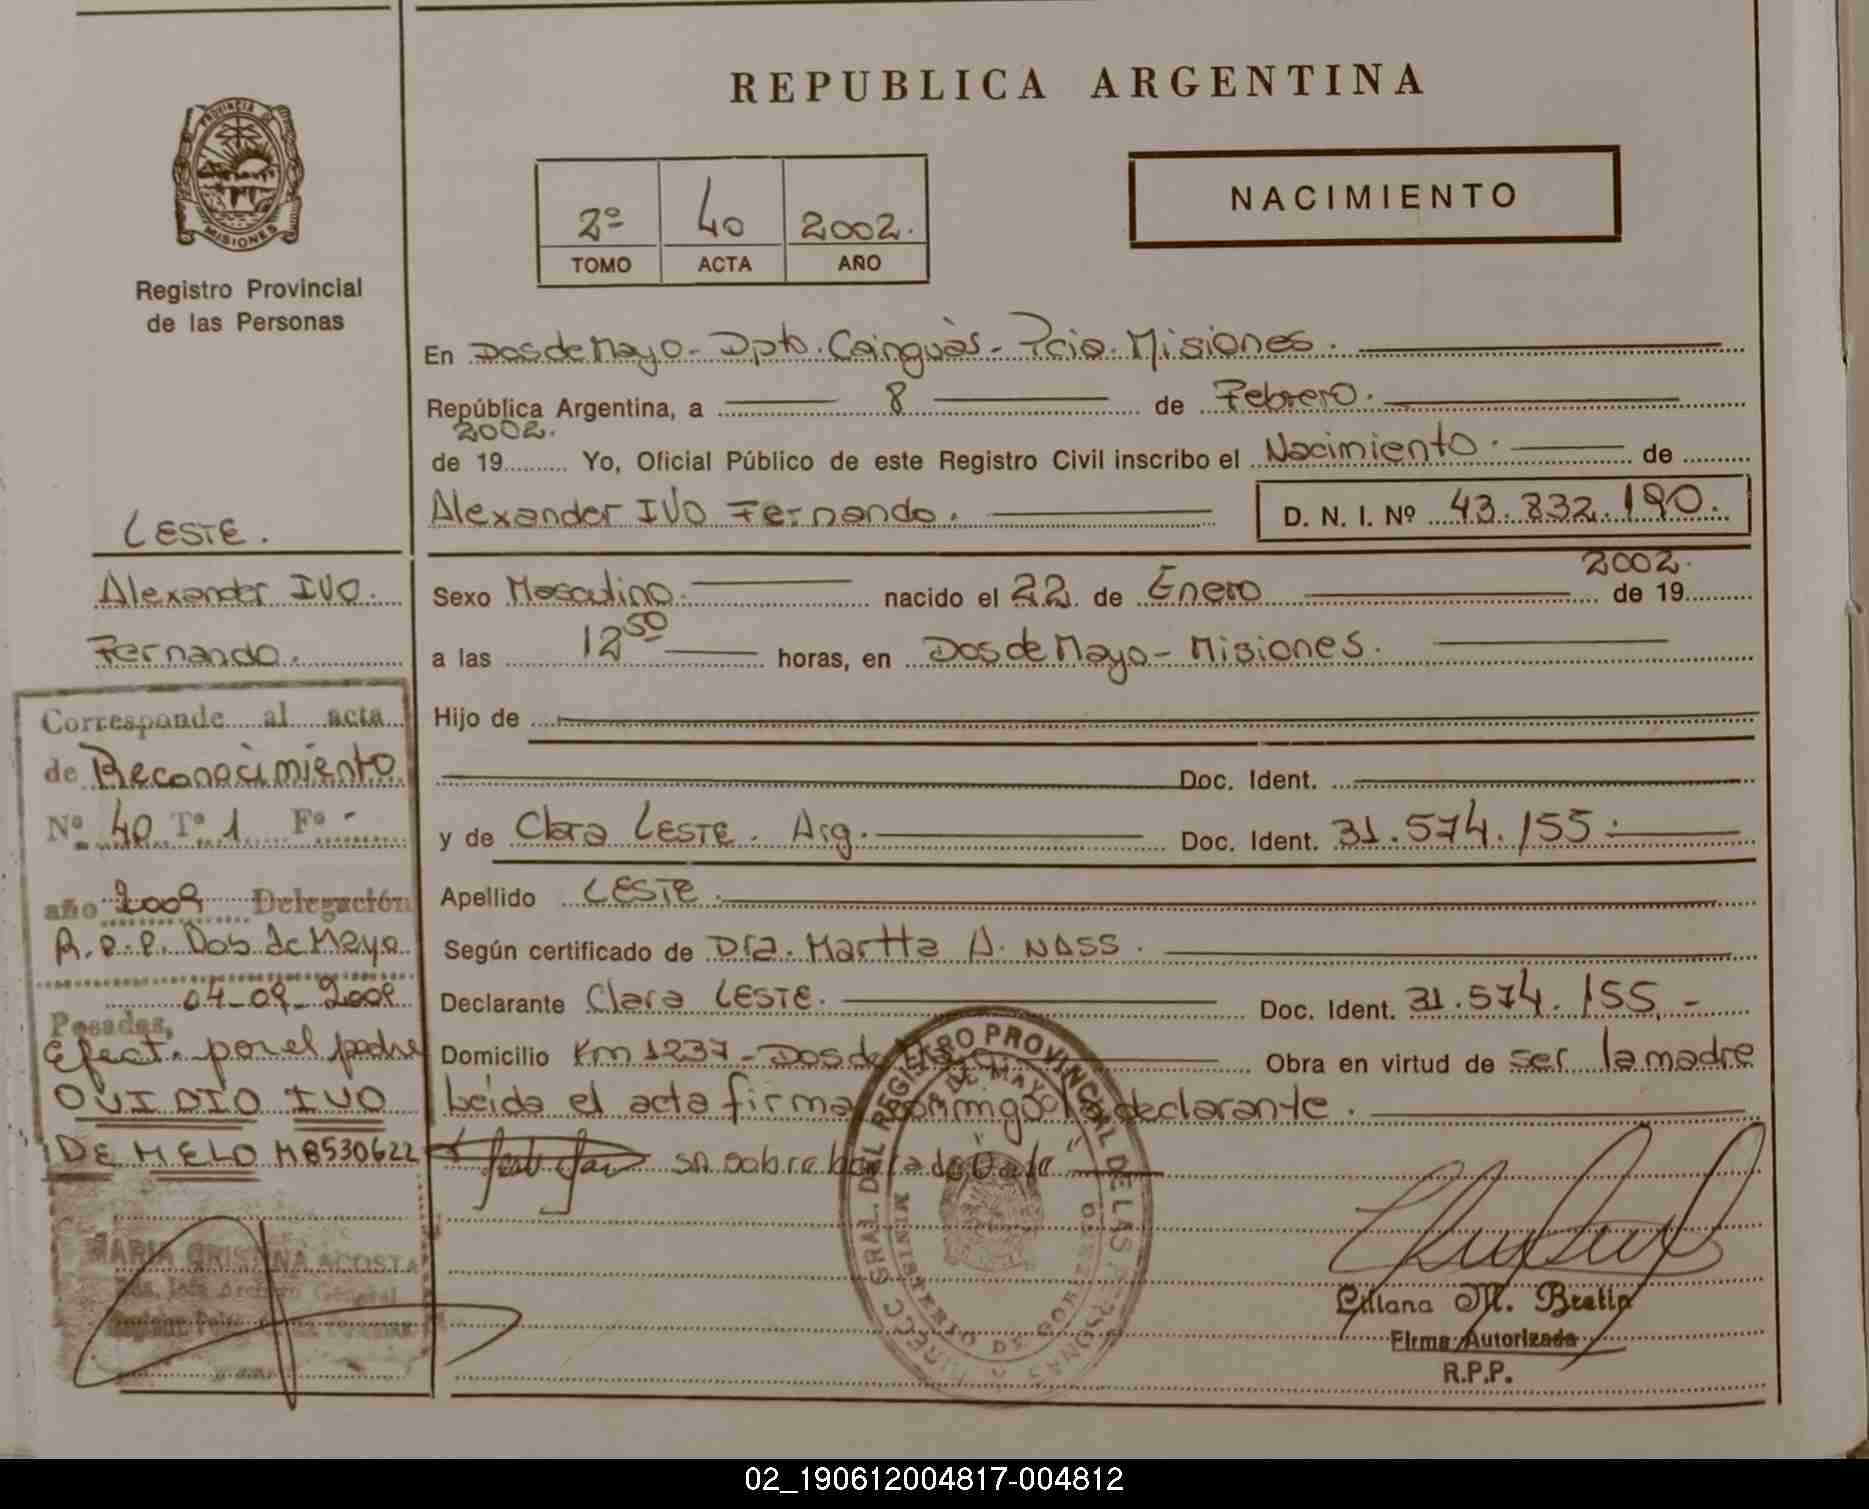 REPUBLICA ARGENTINA
PROVINCIA DE
MISIONES
Registro Provincial
de las Personas
2º 40 2002.
TOMO ACTA AÑO
NACIMIENTO
En Dos de Mayo - Dpto. Cainguàs - Pcia. Misiones.
República Argentina, a 8 de Febrero.
2002.
de 19 Yo, Oficial Público de este Registro Civil inscribo el Nacimiento. de
Alexander IVO Fernando. D. N. I. Nº 43.832.190.
LESTE.
Alexander IVO.
Fernando.
2002.
Sexo Masculino. nacido el 22. de Enero de 19
a las 12 50 horas, en Dos de Mayo - Misiones.
Hijo de
Doc. Ident.
y de Clara LESTE. Arg. Doc. Ident. 31.574.155.
Apellido LESTE.
Según certificado de Dra. Martta A. NASS.
Declarante Clara LESTE. Doc. Ident. 31.574.155.-
Domicilio Km 1237 - Dos de Obra en virtud de ser la madre
Leida el acta firma conmigo la declarante.
sobre "Vale"
Corresponde al acta
de Reconocimiento
Nº 40 Tº 1 Fº -
año 2009 Delegación
R.P.P. Dos de Mayo
04-09-2009
Posadas,
Efect. por el padre
OVIDIO IVO
DE MELO M8530622
MARIA CRISTINA ACOSTA
Archivo General
DIRECC GRAL. DEL REGISTRO PROVINCIAL DE LAS PERSONAS
MINISTERIO DE GOBIERNO
DE MAYO
Liliana M. Bretin
Firma Autorizada
R.P.P.
02_190612004817-004812